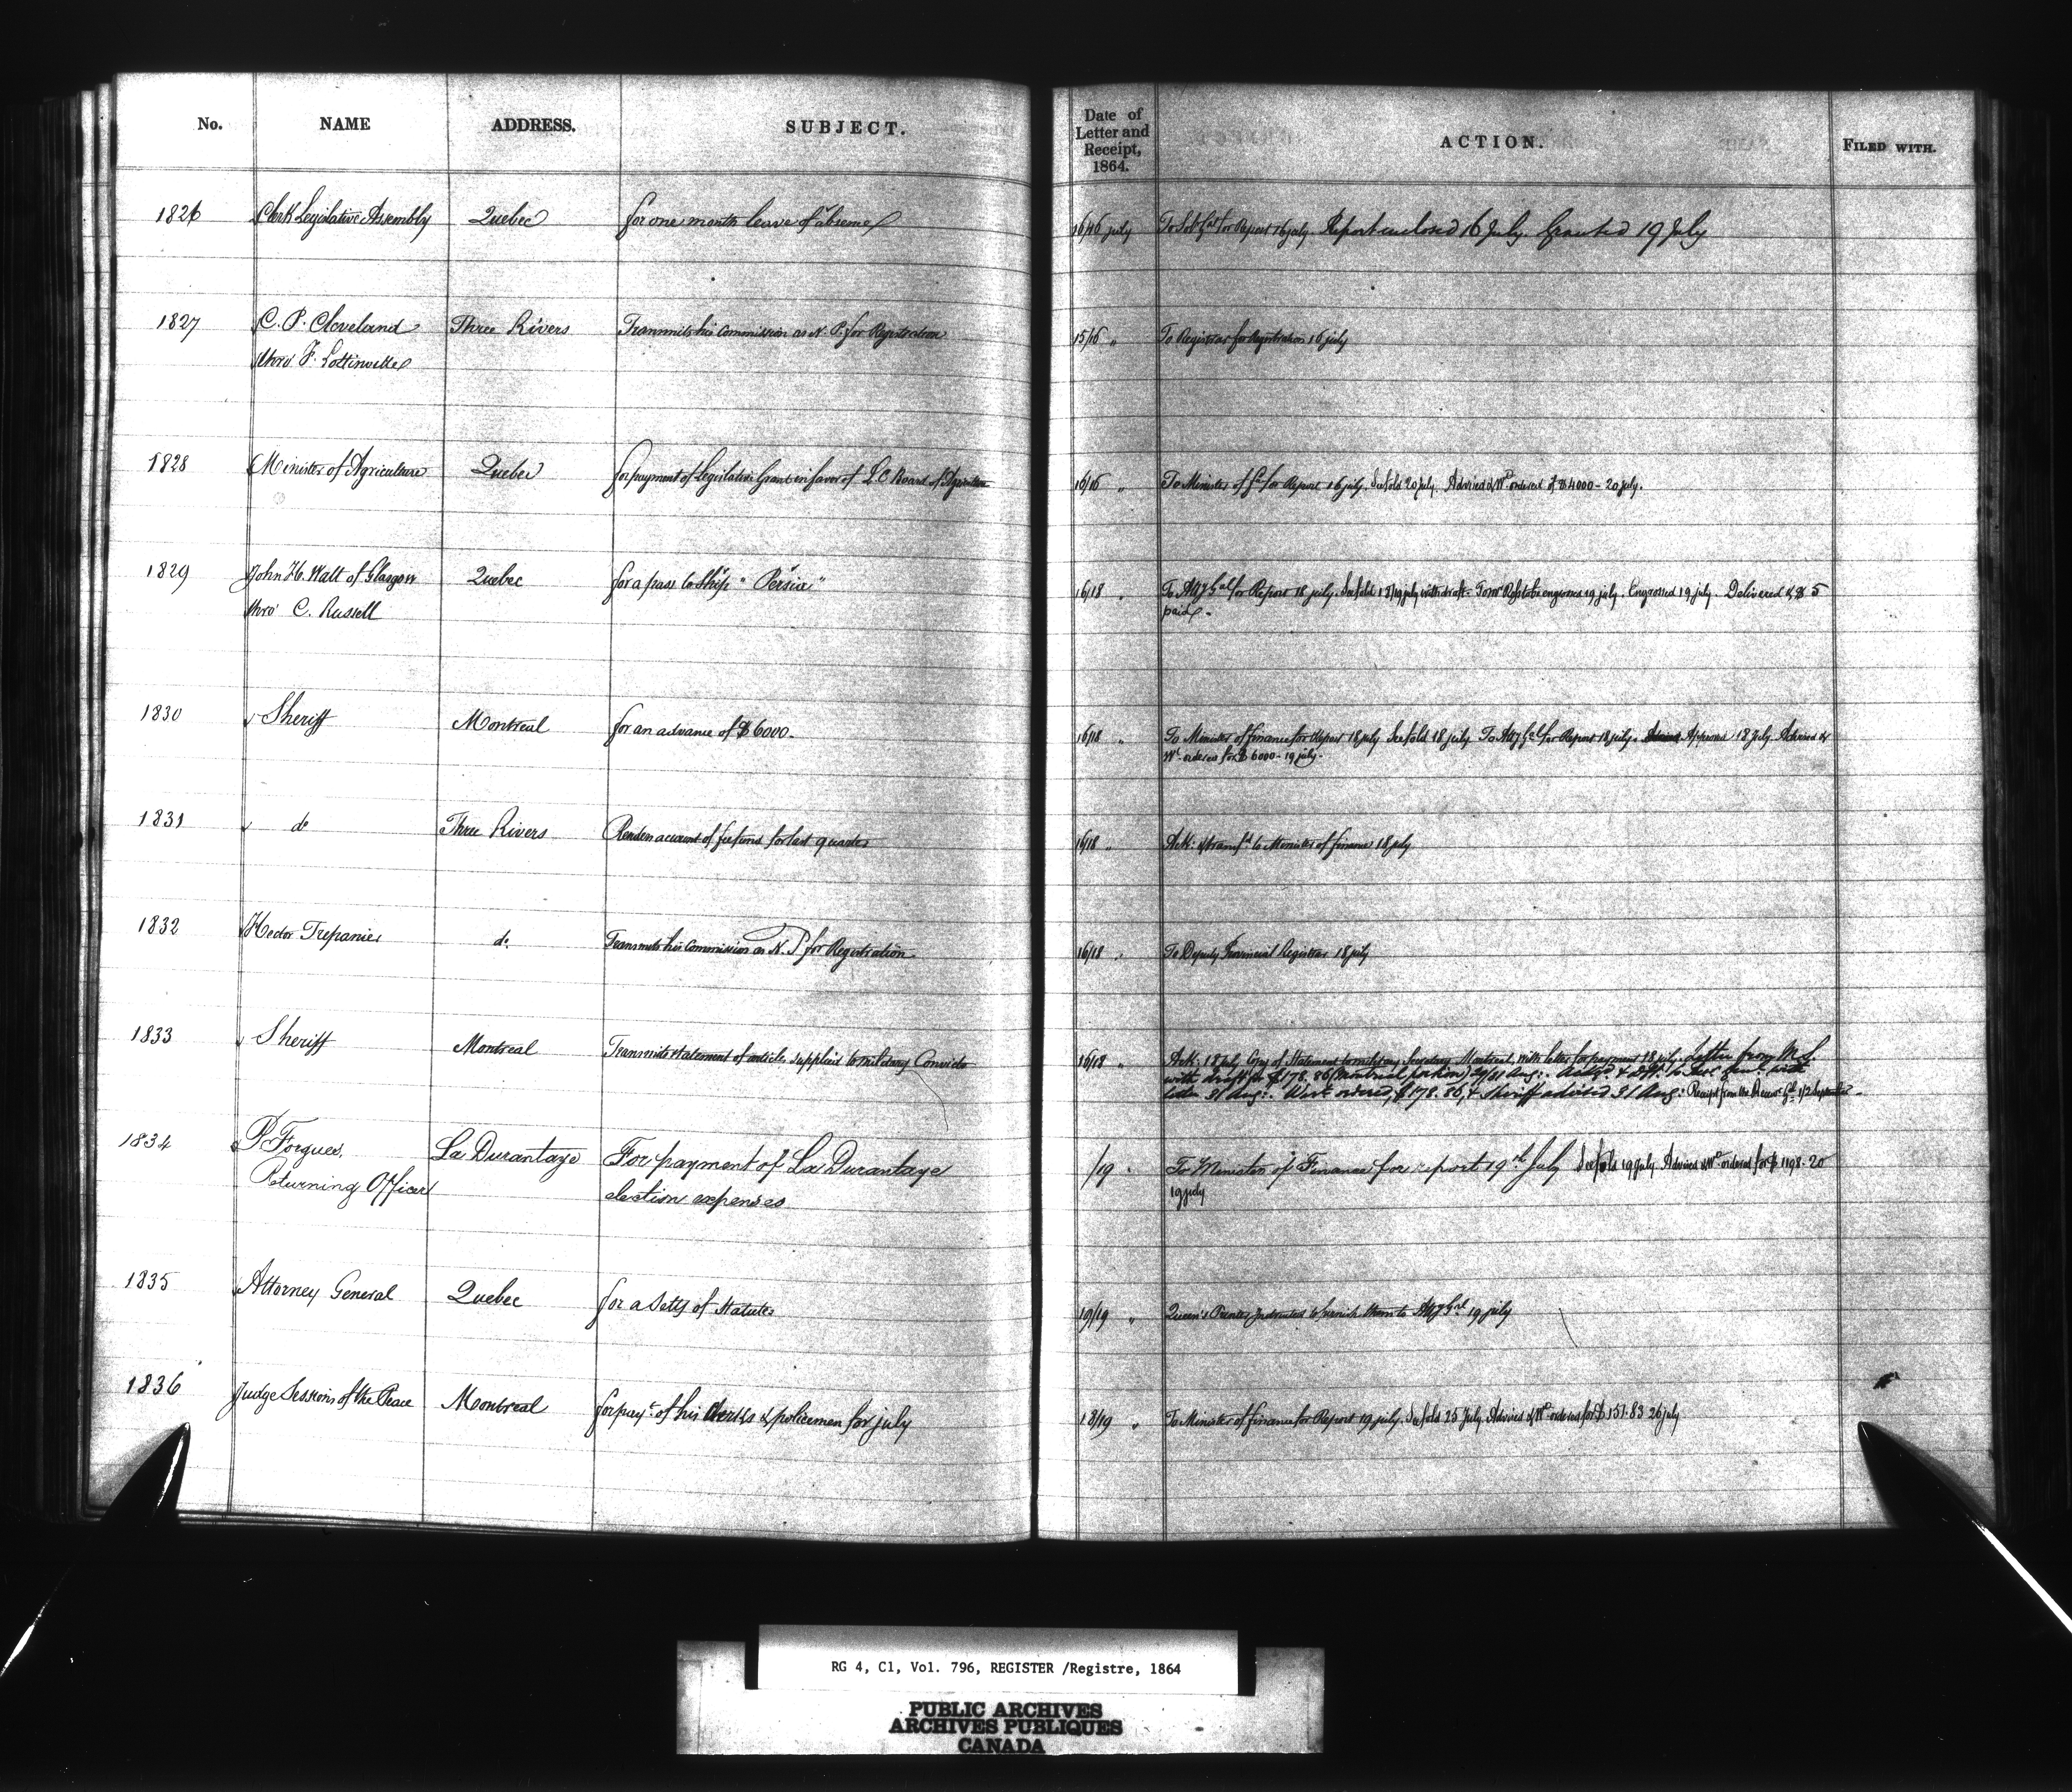 No. NAME ADDRESS. SUBJECT. Date of Letter and Receipt, 1864. ACTION. FILED WITH.
1826 Clerk Legislative Assembly Quebec for one month leave of absence 16/16 july To Sol Gal for Report 16 july. Report enclosed 16 July. Granted 19 July
1827 C. P. Cleveland Three Rivers Transmits his Commission as N. P. for Registration 15/16 " To Registrar for Registration 16 july
thro' F. Lottinville
1828 Minister of Agriculture Quebec for payment of Legislative Grant in favor of L. C. Board of Agriculture 16/16 " To Minister of for Report 16 july. See fold 20 july. Advised & Wt ordered of $4000 - 20 july.
1829 John H. Watt of Glasgow Quebec for a pass to Ship "Persia" 16/18 " To Atty Gal for Report 18 july. See fold 18/19 july with draft. to be engrossed 19 july. Engrossed 19 july. Delivered & $5
thro' C. Russell paid -
1830 Sheriff Montreal for an advance of $6000 16/18 " To Minister of finance for Report 18 july See fold 18 july To Atty Gal for Report 18 july. Approves 18 july Advised &
Wt ordered for $6000 - 19 july.
1831 do Three Rivers Renders account of for last quarter 16/18 " Ack: & transfd to Minister of finance 18 july
1832 Hector Trepanier do Transmits his Commission as N. P. for Registration 16/18 " To Deputy Provincial Registrar 18 july
1833 Sheriff Montreal Transmits statement of articles supplied to military Convicts 16/18 " Ack: 18 july Copy of Statement to military Secretary Montreal, with letter for payment 18 july. Letter from M. S.
with draft for $178.86 portion) 29/31 Aug: with
letter 31 Aug:. Wt ordered, $178.86, & Sheriff advised 31 Aug: Receipt from the Gl 1/2 September
1834 P. Forgues, La Durantaye For payment of La Durantaye /19 " To Minister of Finance for report 19th July See fold 19 july Advised & Wt ordered for $1198.20
Returning Officer election expenses 19 july
1835 Attorney General Quebec for a Sett of Statutes 19/19 " Queen's Printer Instructed to furnish them to Atty Gnl 19 july
1836 Judge Sessions of the Peace Montreal for payt of his Clerks & policemen for july 18/19 " To Minister of finance for Report 19 july. See fold 25 July. Advised & Wt ordered for $151.83 26 july
RG 4, C1, Vol. 796, REGISTER /Registre, 1864
PUBLIC ARCHIVES
ARCHIVES PUBLIQUES
CANADA